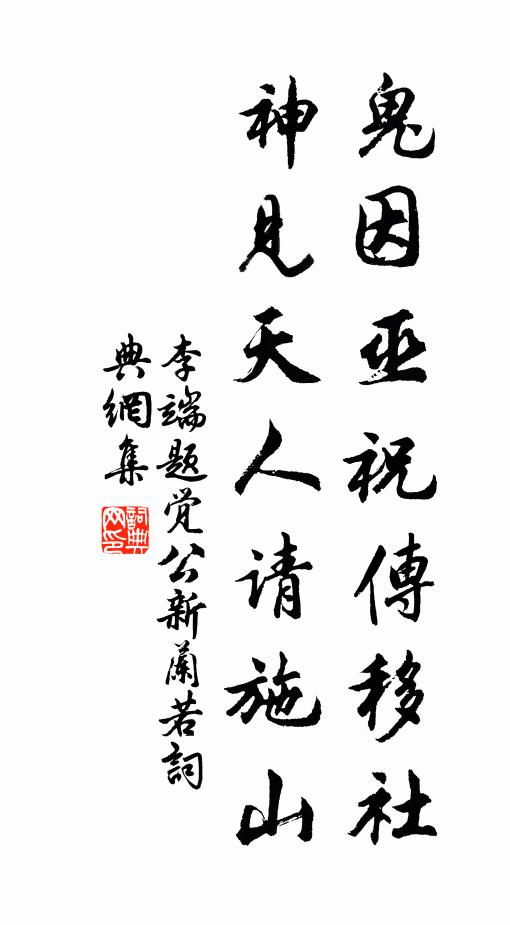 鬼因巫祝傳移社
神見天人请施山
李端題觉公新蘭若詞
典網集
詞典
网印